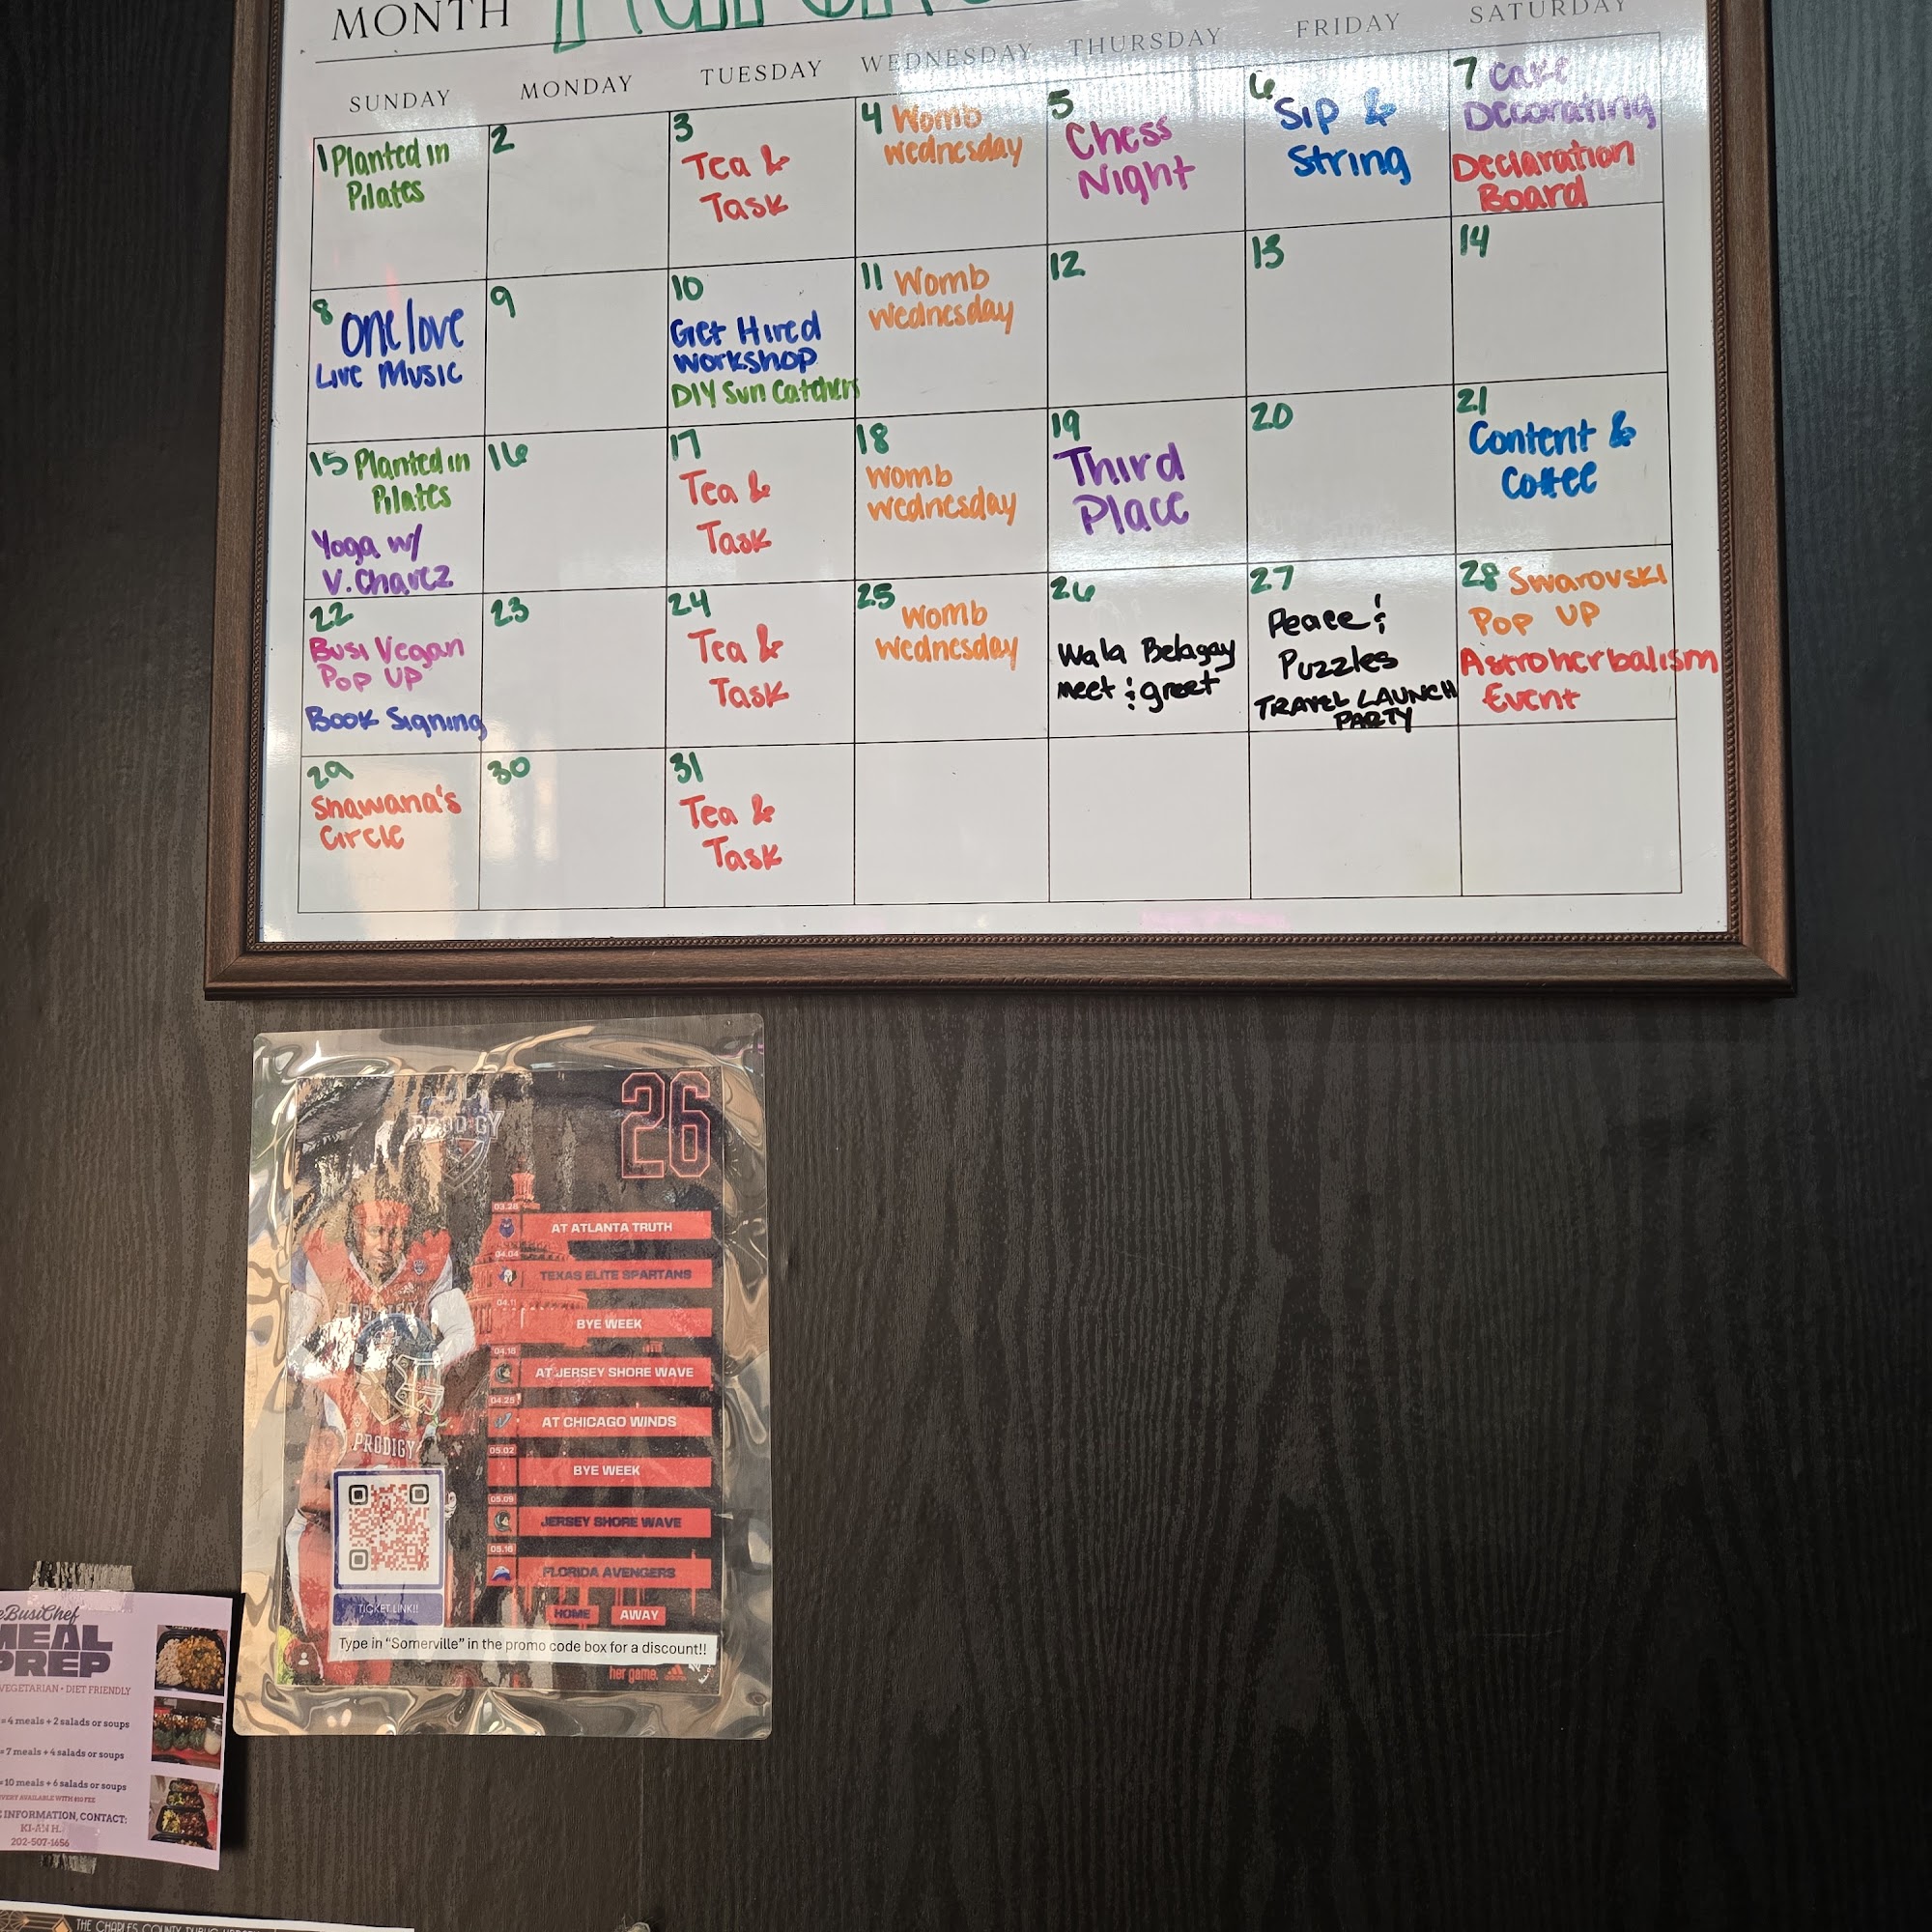 MONTH
SUNDAY MONDAY TUESDAY WEDNESDAY THURSDAY FRIDAY SATURDAY
1 Planted in
Pilates
2
3
Tea &
Task
4 Womb
Wednesday
5
Chess
Night
6
Sip &
String
7 Cake
Decorating
Declaration
Board
8 One love
Live Music
9
10
Get Hired
Workshop
DIY Sun Catchers
11 Womb
Wednesday
12
13
14
15 Planted in
Pilates
Yoga w/
V. Charez
16
17
Tea &
Task
18
Womb
Wednesday
19
Third
Place
20
21
Content &
Coffee
22
Busi Vegan
Pop Up
Book Signing
23
24
Tea &
Task
25
Womb
Wednesday
26
Wala Belagay
meet & greet
27
Peace &
Puzzles
TRAVEL LAUNCH
PARTY
28 Swarovski
Pop UP
Astroherbalism
Event
29
Shawana's
Circle
30
31
Tea &
Task
PRODIGY
26
03.28
AT ATLANTA TRUTH
04.04
TEXAS ELITE SPARTANS
04.11
BYE WEEK
04.18
AT JERSEY SHORE WAVE
04.25
AT CHICAGO WINDS
05.02
BYE WEEK
05.09
JERSEY SHORE WAVE
05.16
FLORIDA AVENGERS
HOME AWAY
PRODIGY
TICKET LINK!!
Type in "Somerville" in the promo code box for a discount!!
her game.
BusiChef
MEAL
PREP
VEGETARIAN • DIET FRIENDLY
= 4 meals + 2 salads or soups
= 7 meals + 4 salads or soups
= 10 meals + 6 salads or soups
AVAILABLE WITH $10 FEE
INFORMATION, CONTACT:
KI-AN H.
202-507-1656
THE CHARLES COUNTY PUBLIC